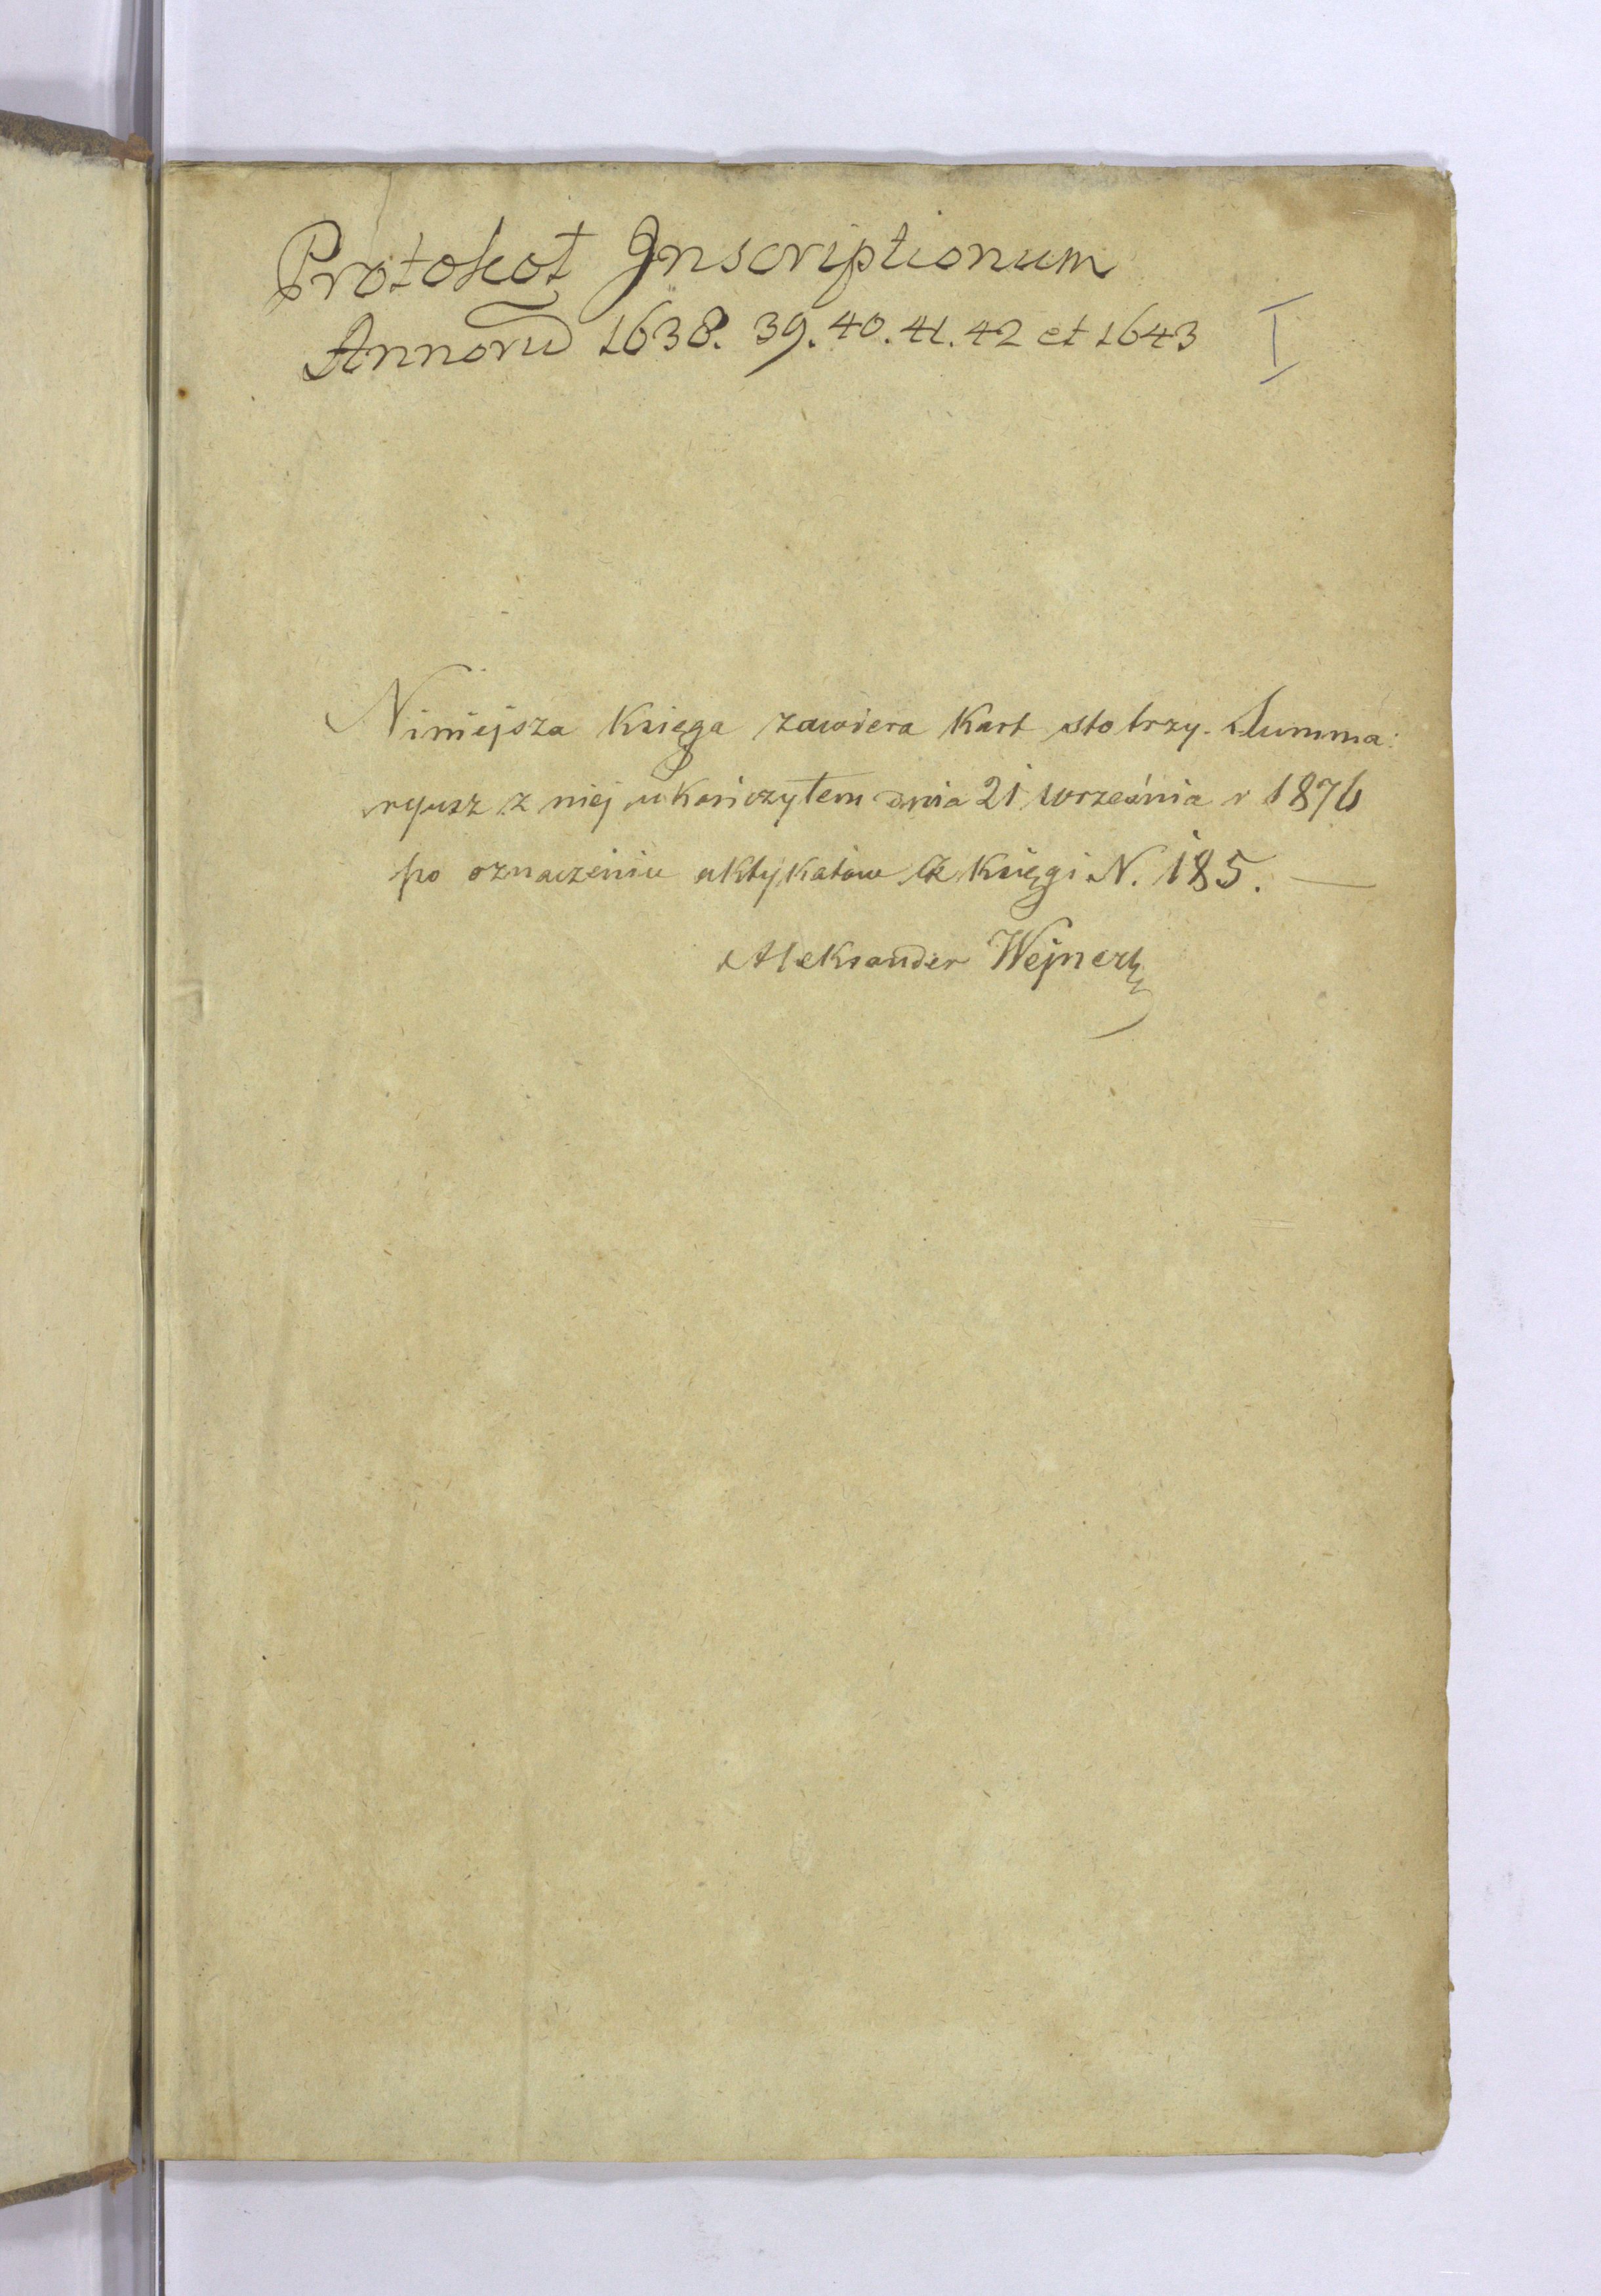 Protokoł Inscriptionum
Annorū 1638. 39. 40. 41. 42 et 1643 I
Niniejsza Księga zawiera Kart sto trzy. Summa:
ryusz z niej ukończyłem dnia 21 września r 1876
po oznaczeniu aktykatów z Księgi N. 185. —
Aleksander Wejnert